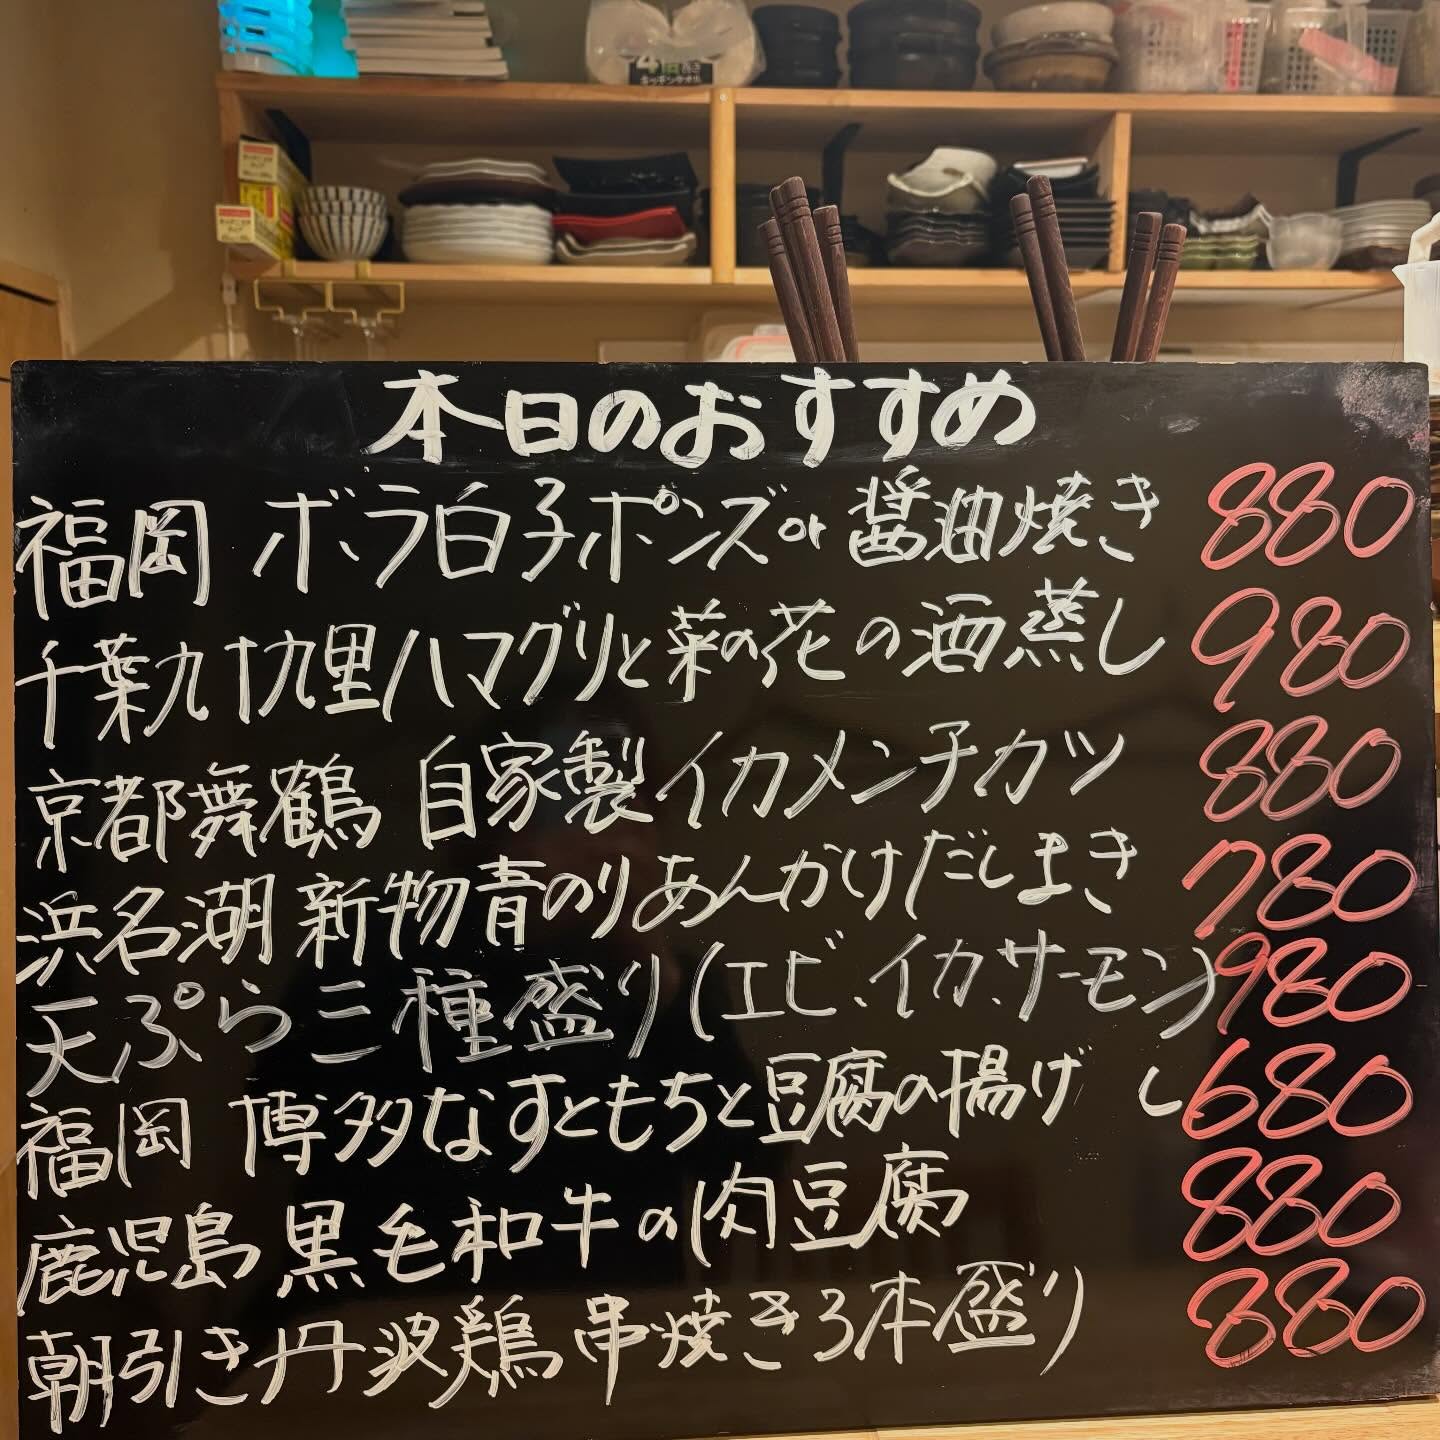 4倍巻き
キッチンタオル
本日のおすすめ
福岡 ボラ白子ポンズor醤油焼き 880
千葉九十九里ハマグリと菜の花の酒蒸し 980
京都舞鶴 自家製イカメンチカツ 880
浜名湖 新物青のりあんかけだしまき 780
天ぷら三種盛り(エビ、イカ、サーモン) 980
福岡 博多なすともちと豆腐の揚げ し 680
鹿児島 黒毛和牛の肉豆腐 880
朝引き丹波鶏 串焼き3本盛り 880